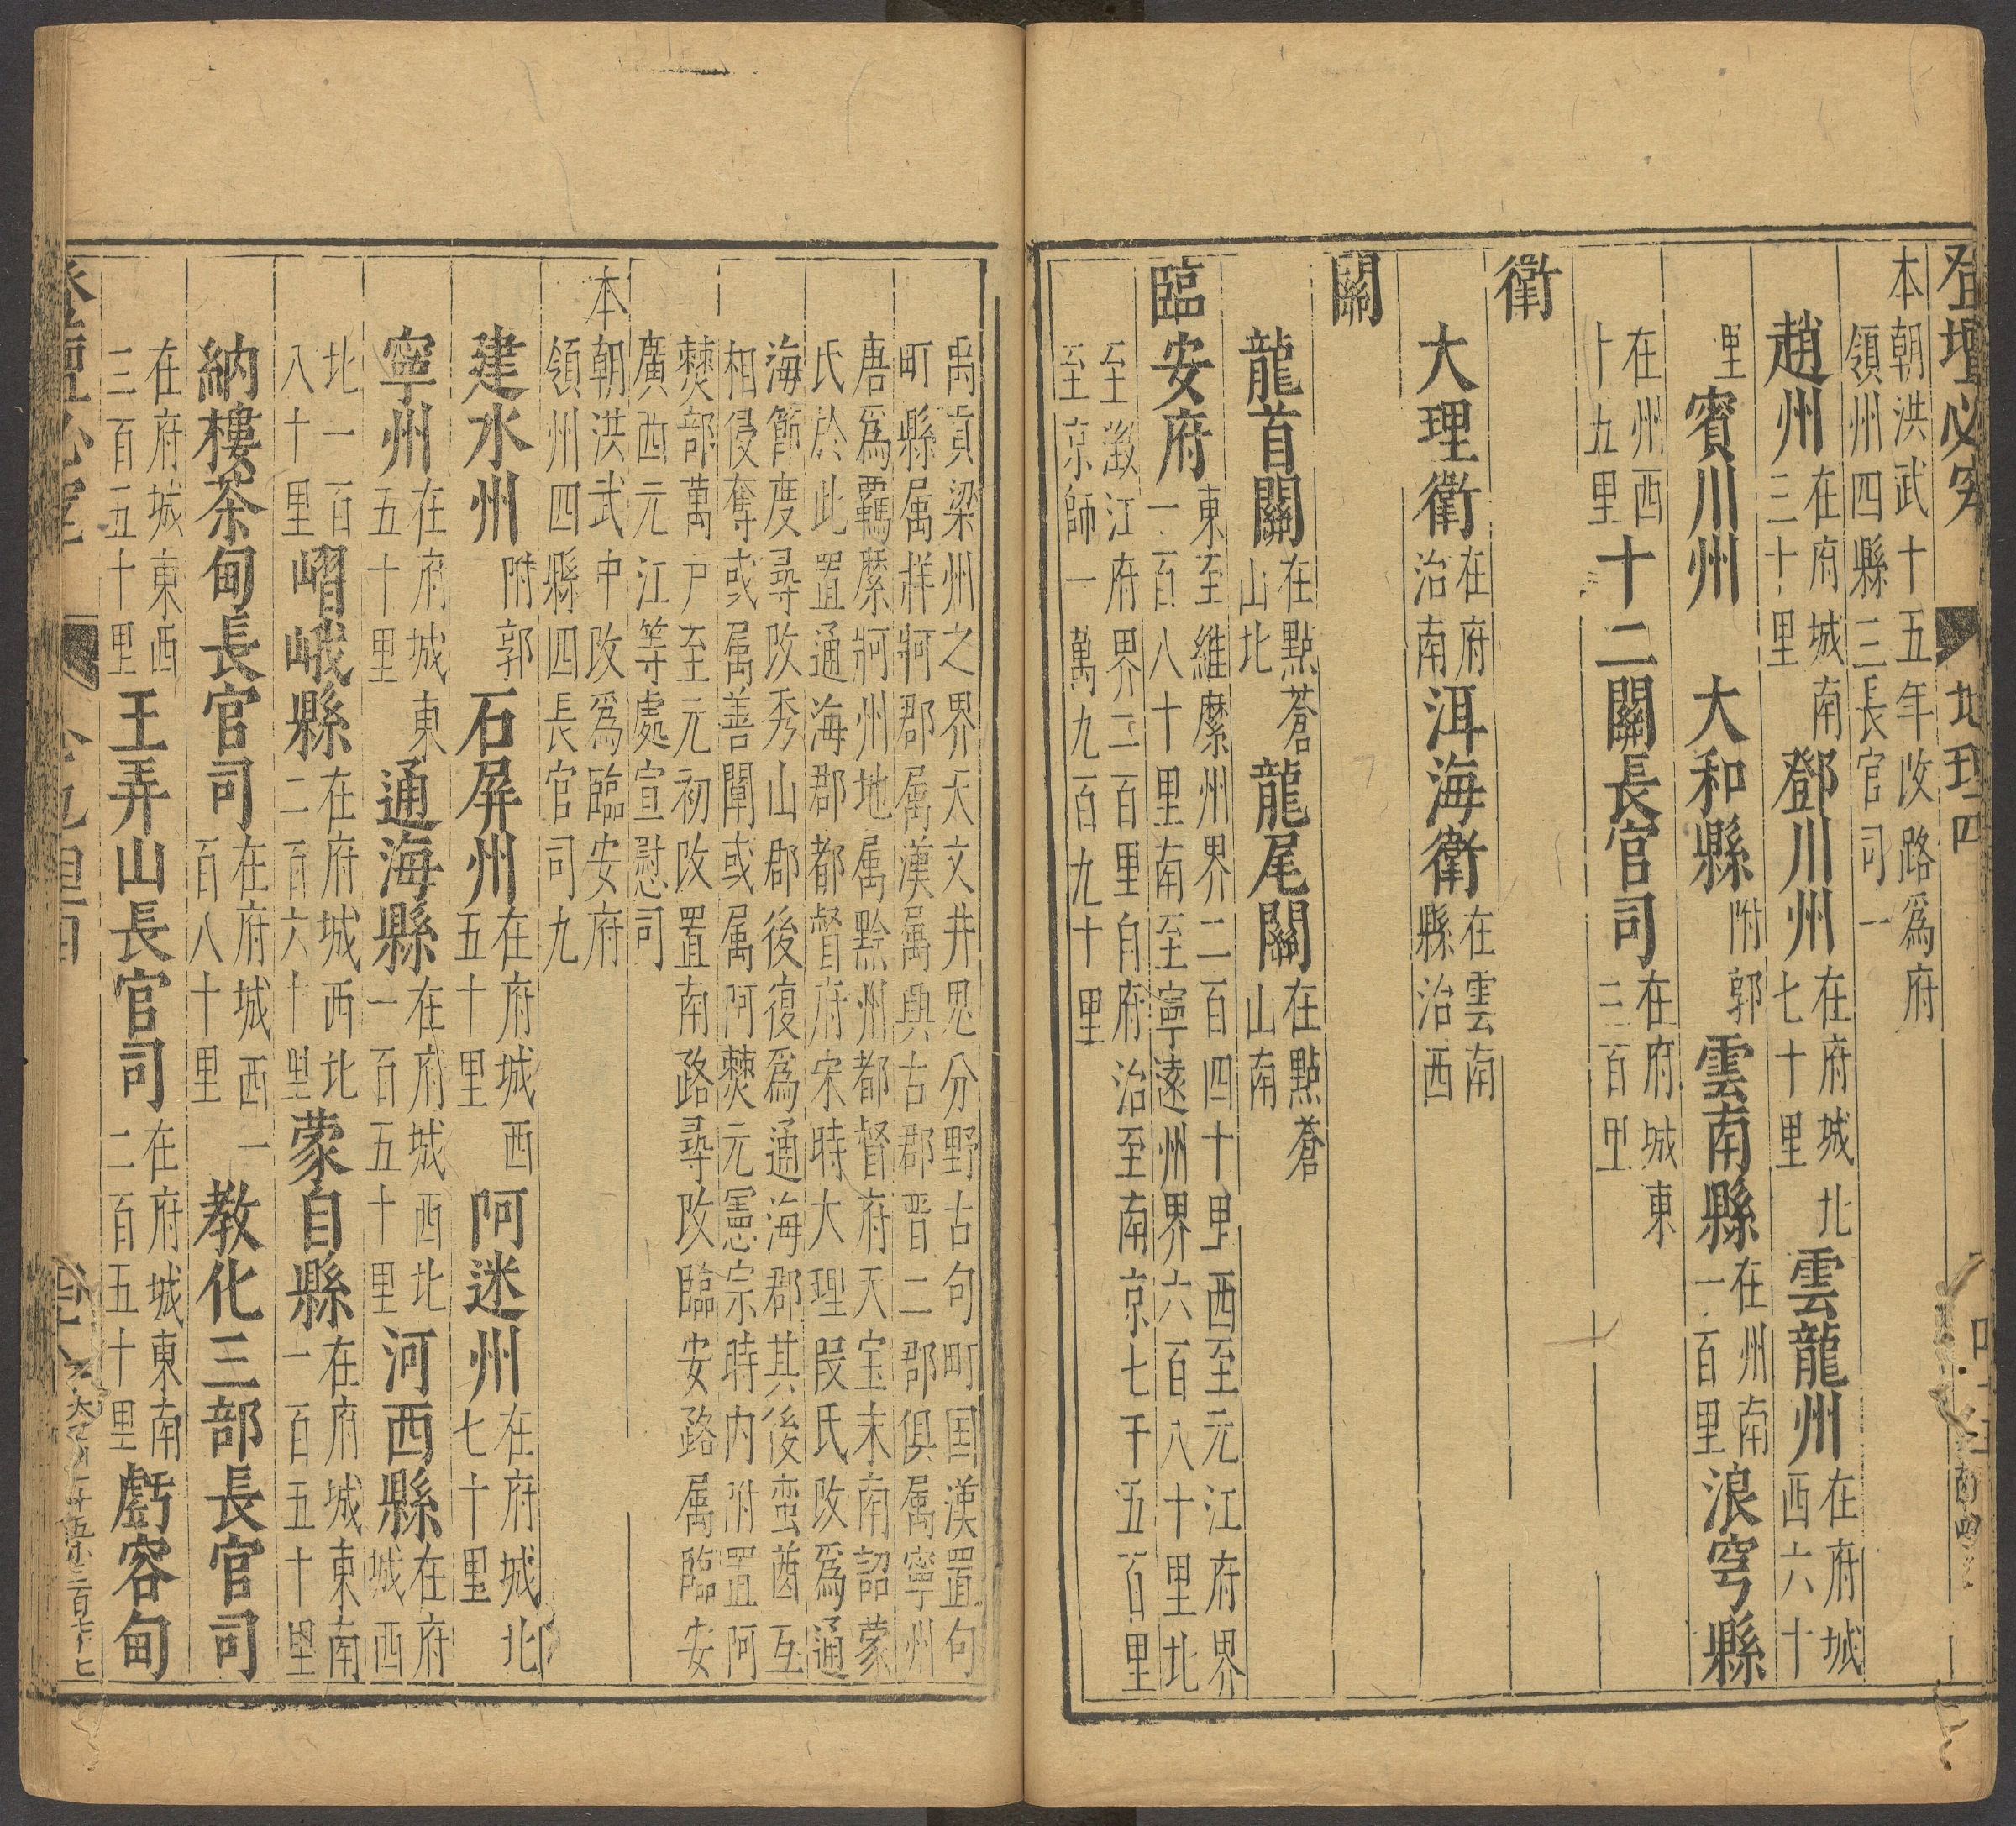 登壇必究 地理四
本朝洪武十五年改路爲府
領州四縣三長官司一
趙州在府城南三十里鄧川州在府城北七十里雲龍州在府城西六十
里賓川州 大和縣附郭雲南縣在州南一百里浪穹縣
在州西卜五里十二關長官司在府城東三百里
衛
大理衛在府治南洱海衛在雲南縣治西
關
龍首關在點蒼山北龍尾關在點蒼山南
臨安府東至維摩州界二百四十里西至元江府界一百八十里南至寧遠州界六百八十里北
至澂江府界二百里自府治至南京七千五百里
至京師一萬九百九十里
禹貢梁州之界天文井鬼分野古句町国漢置句
町縣属牂牁郡属漢属興古郡晋二郡俱属寧州
唐爲覊縻牁州地属黔州都督府天宝末南詔蒙
氏於此置通海郡都督府宋時大理叚氏改爲通
海節度尋改秀山郡後復爲通海郡其後蛮酋互
相侵奪或属善闡或属阿僰元憲宗時内附置阿
僰部萬户至元初改置南路尋改臨安路属臨安
廣西元江等處宣慰司
本朝洪武中改爲臨安府
領州四縣四長官司九
建水州附郭石屏州在府城西五十里阿迷州在府城北七十里
寧州在府城東五十里通海縣在府城西北一百五十里河西縣在府城西
北一百八十里嶍峨縣在府城西北二百六十里蒙自縣在府城東南一百五十里
納樓茶甸長官司在府城西一百八十里教化三部長官司
在府城東西三百五十里王弄山長官司在府城東南二百五十里虧容甸